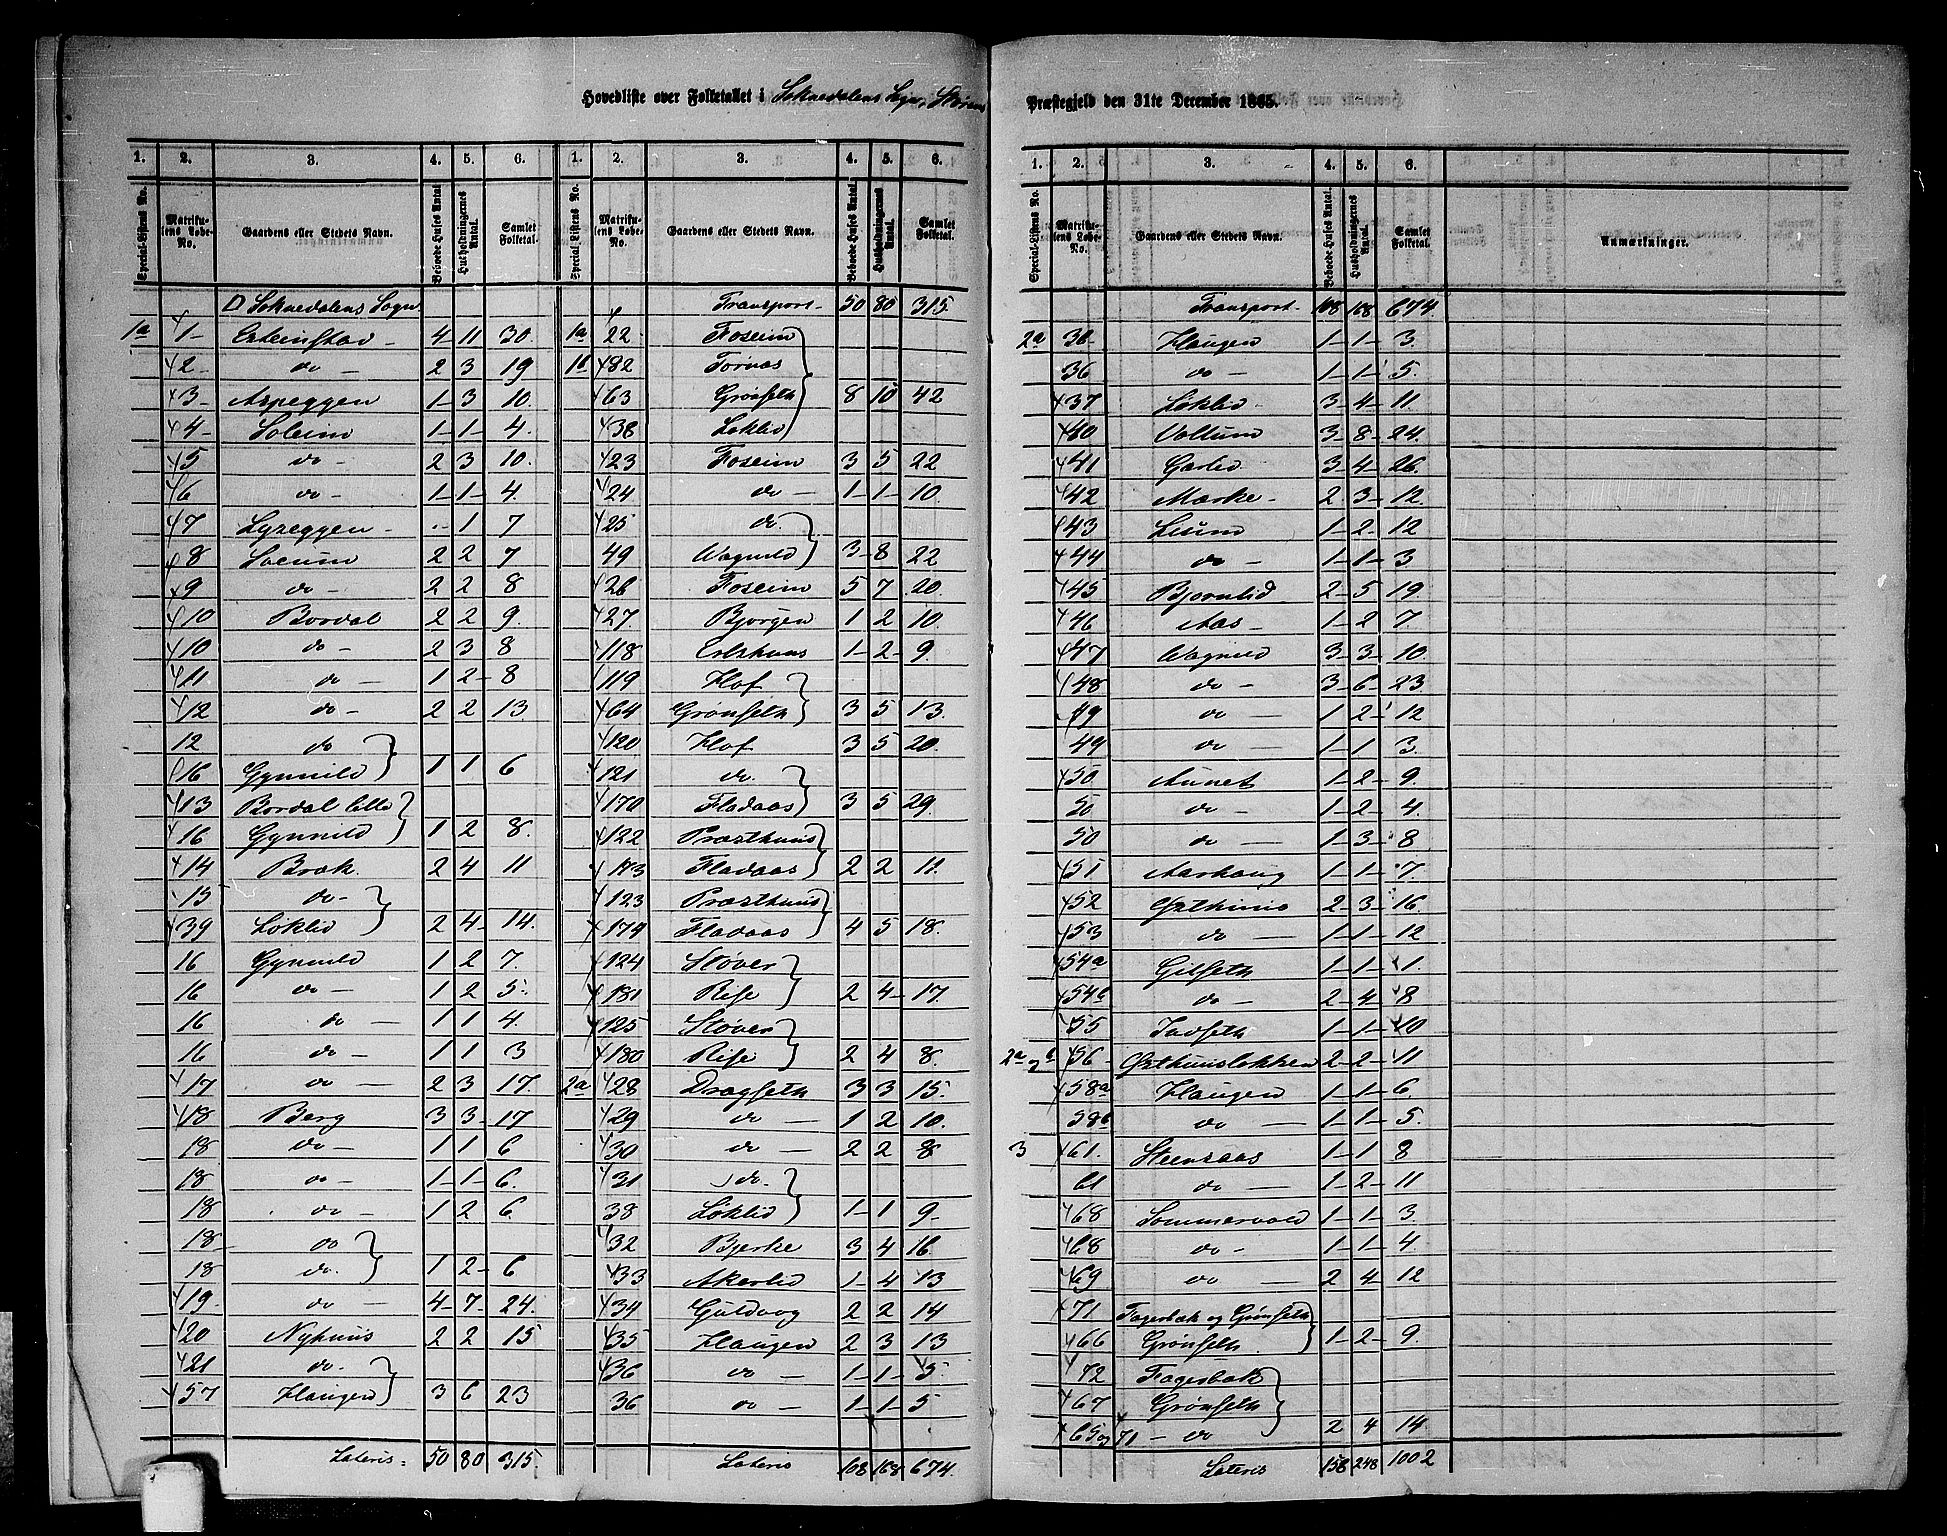 Hovedliste over Folketallet i Soknedalens Sogn, Størens Præstegjeld den 31te December 1865.
1. 2. 3. 4. 5. 6. 1. 2. 3. 4. 5. 6.
Special-Listens No. Matrikulens Løbe-No. Gaardens eller Stedets Navn. Beboede Huses Antal. Husholdningernes Antal. Samlet Folketal. Special-Listens No. Matrikulens Løbe-No. Gaardens eller Stedets Navn. Beboede Huses Antal. Husholdningernes Antal. Samlet Folketal.
Soknedalens Sogn Transport 50 80 315
1a 1 4 11 30. 1a 22 Foseim
2 do 2 3 19 1b 82 Tornas
3 Aspeggen 1 3 10. 63 Grønseth 8 10 42
4 Soleim 1 1 4. 38 Løklid
5 do 2 3 10. 23 Foseim 3 5 22
6 do 1 1 4. 24 do 1 1 10.
7 Lyseggen 1 7 25 do
8 2 2 7 49 Wagnild 3 8 22
9 do 2 2 8 26 Foseim 5 7 20.
10 Bordal 2 2 9. 27 Bjørgen 1 2 10.
10 do 2 3 8 118 1 2 9.
11 do 1 2 8 119 Hof
12 do 2 2 13 64 Grønseth 3 5 13.
12 do 120 Hof 3 5 20.
16 Gynnild 1 1 6 121 do.
13 Bordal lille 170 Fladaas 3 5 29.
16 Gynnild 1 2 8. 122 Præsthuus
14 Bræk 2 4 11 173 Fladaas 2 2 11.
15 do 123 Præsthuus
39 Løklid 2 4 14. 179 Fladaas 4 5 18.
16 Gynnild 1 2 7. 124 Støver
16 do 1 2 5. 181 Rise 2 4 17.
16 do 1 1 4. 125 Støver
16 do 1 1 3 180 Rise 2 4 8.
17 do 2 3 17. 2a 28 Dragseth 3 3 15.
18 Berg 3 3 17 29 do 1 2 10.
18 do 1 1 6 30 do 2 2 8
18 do 1 1 6. 31 do.
18 do 1 2 6. 38 Løklid 1 1 9
18 do 32 Bjerke 3 4 16
18 do. 1 2 6 33 Akerlid 1 4 13
19 do 4 7 24. 34 Guldvog 2 2 14
20 Nyhuus 2 2 15 35 Haugen 2 3 13
21 do. 36 do 1 1 5.
57 Haugen 3 6 23 36 do 1 1 5
Lateris 50 80 315. Lateris 108 168 674.
1. 2. 3. 4. 5. 6.
Special-Listens No. Matrikulens Løbe-No. Gaardens eller Stedets Navn. Beboede Huses Antal. Husholdningernes Antal. Samlet Folketal. Anmærkninger.
Transport 108 168 674
2a 36 Haugen 1 1 3.
36 do 1 1 5.
37 Løklid 3 4 11
40 Vollum 3 8 24.
41 Garlid 3 4 26.
42 Mærke 2 3 12.
43 Lium 1 2 12
44 do 1 1 3
45 Bjørnlid 2 5 19.
46 Aas 1 2 7
47 Wagnild 3 3 10.
48 do 3 6 23
49 do 1 2 12
49 do 1 1 3.
50 Aunet 1 2 9.
50 do 1 2 4.
50 do 1 3 8
51 Aarhaug 1 1 7.
52 2 3 16
53 do 1 1 12
54a Gilseth 1 1 1.
54b do 2 4 8
55 1 1 10
2a 2b 56 2 2 11
58a Haugen 1 1 6.
58b do 1 1 5.
3 61. Steensaas 1 1 8
61 do 1 2 11
68 Sommervold 1 1 3.
68 do 1 1 4.
69 do 2 4 12
71 Fagerbæk og Grønseth
66 Grønseth 1 2 9.
72 Fagerbæk
67 Grønseth
65 og 71 do 2 4 14
Lateris 158 248 1002